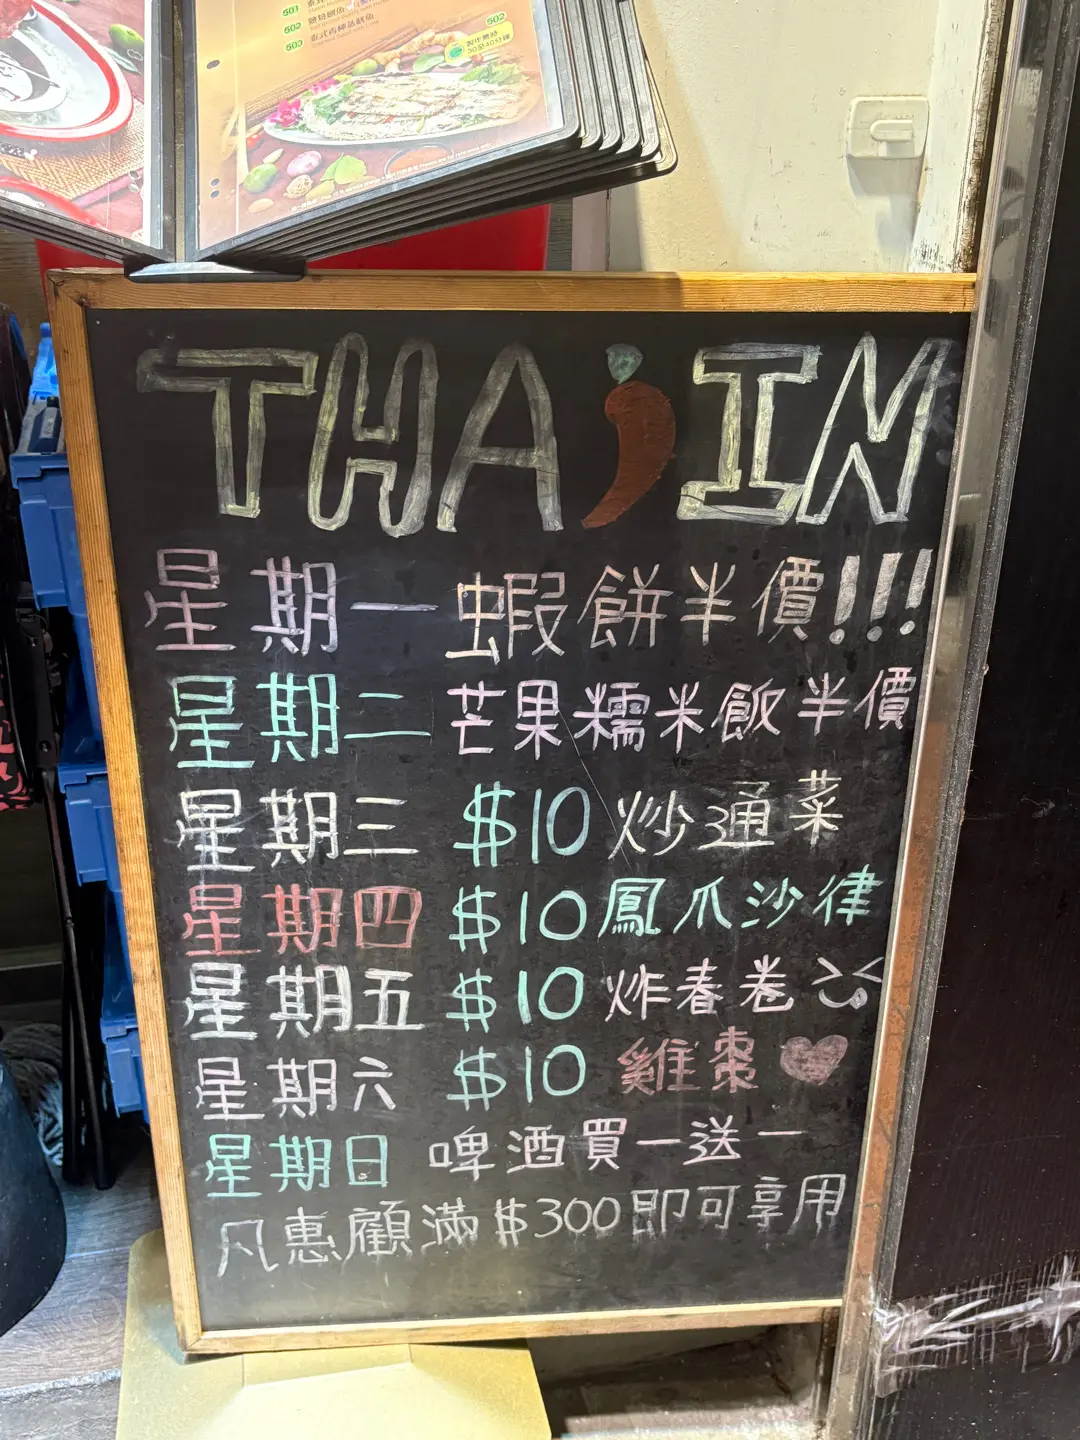 501
502
503
502
製作需時
30至40分鐘
THAIIN
星期一 蝦餅半價!!!
星期二 芒果糯米飯半價
星期三 $10 炒通菜
星期四 $10 鳳爪沙律
星期五 $10 炸春卷
星期六 $10 雞棗
星期日 啤酒買一送一
凡惠顧滿$300即可享用